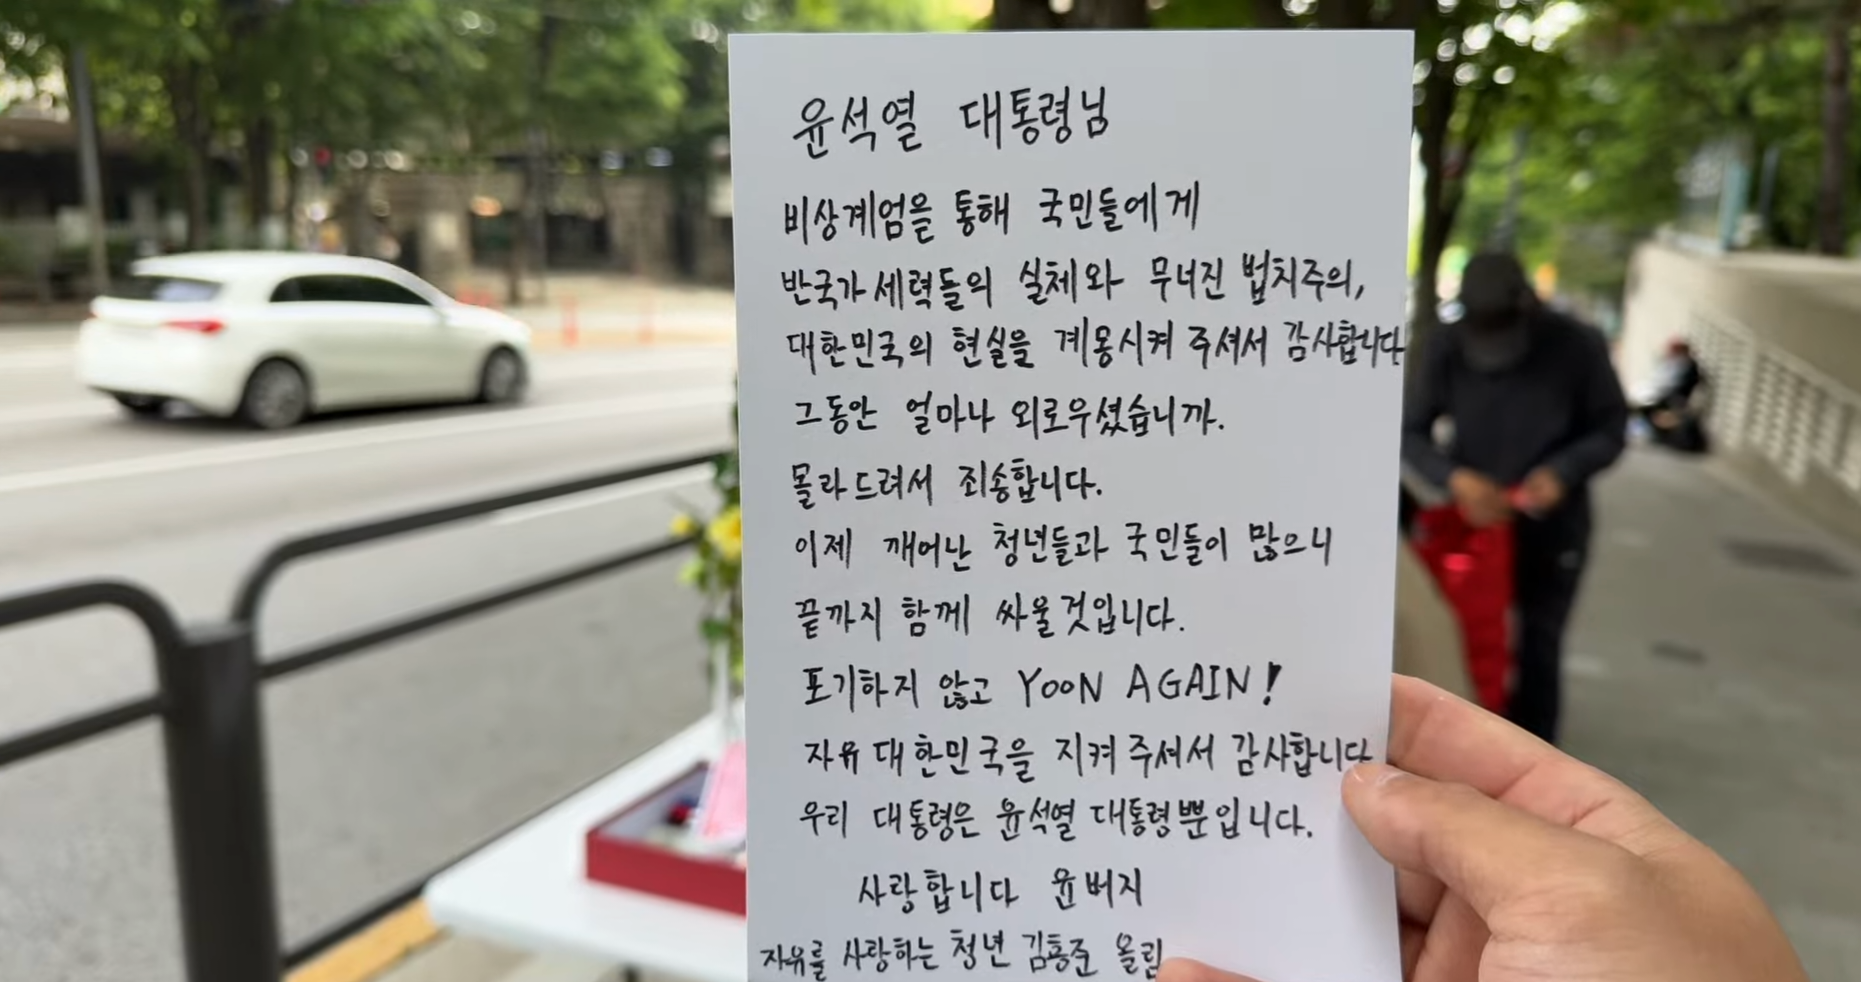 윤석열 대통령님
비상계엄을 통해 국민들에게
반국가세력들의 실체와 무너진 법치주의,
대한민국의 현실을 계몽시켜 주셔서 감사합니다
그동안 얼마나 외로우셨습니까.
몰라드려서 죄송합니다.
이제 깨어난 청년들과 국민들이 많으니
끝까지 함께 싸울것입니다.
포기하지 않고 YOON AGAIN!
자유 대한민국을 지켜 주셔서 감사합니다
우리 대통령은 윤석열 대통령뿐입니다.
사랑합니다 윤버지
자유를 사랑하는 청년 김흥준 올림